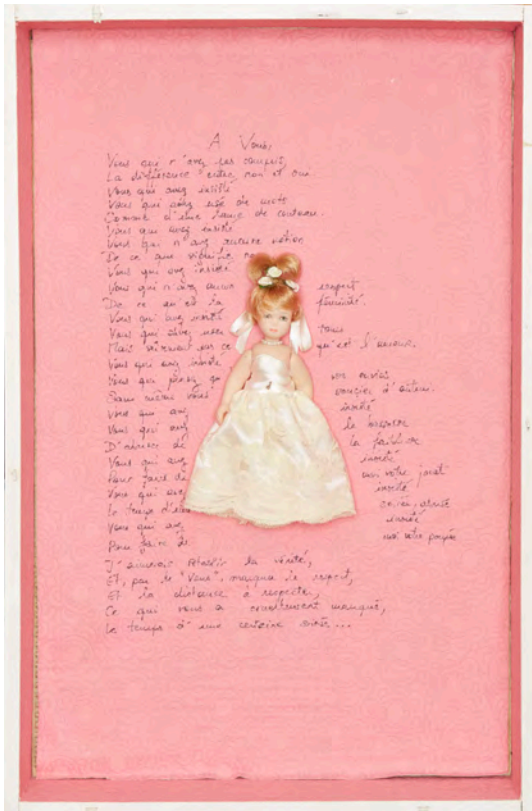 A Vous,
Vous qui n'avez pas compris,
La différence entre non et oui.
Vous qui avez insisté
Vous qui avez usé de mots
Comme d'une lame de couteau.
Vous qui avez insisté
Vous qui n'avez aucune notion
De ce que signifie
Vous qui avez insisté
Vous qui n'avez aucun respect
De ce qu'est la féminité.
Vous qui avez insisté
Vous qui savez
Mais sûrement pas ce qu'est l'amour.
Vous qui avez insisté
Vous qui vos envies
Sans même vous soucier d'autrui.
Vous qui avez insisté
Vous qui avez
D' de la faiblesse
Vous qui avez insisté
Pour faire de moi votre jouet
Vous qui avez insisté
Le temps d'
Vous qui avez insisté
Pour faire de moi votre poupée
J'aimerais rétablir la vérité,
Et, par le "Vous", marquer le respect,
Et la distance à respecter,
Ce qui vous a cruellement manqué,
Le temps d'une certaine soirée...